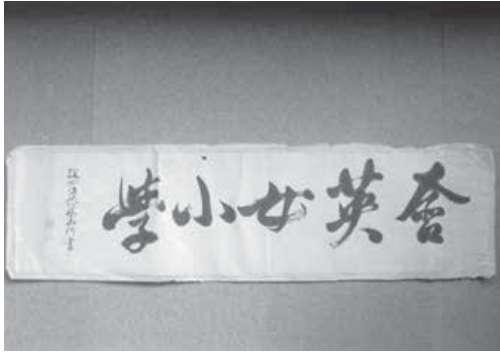 會英女小學